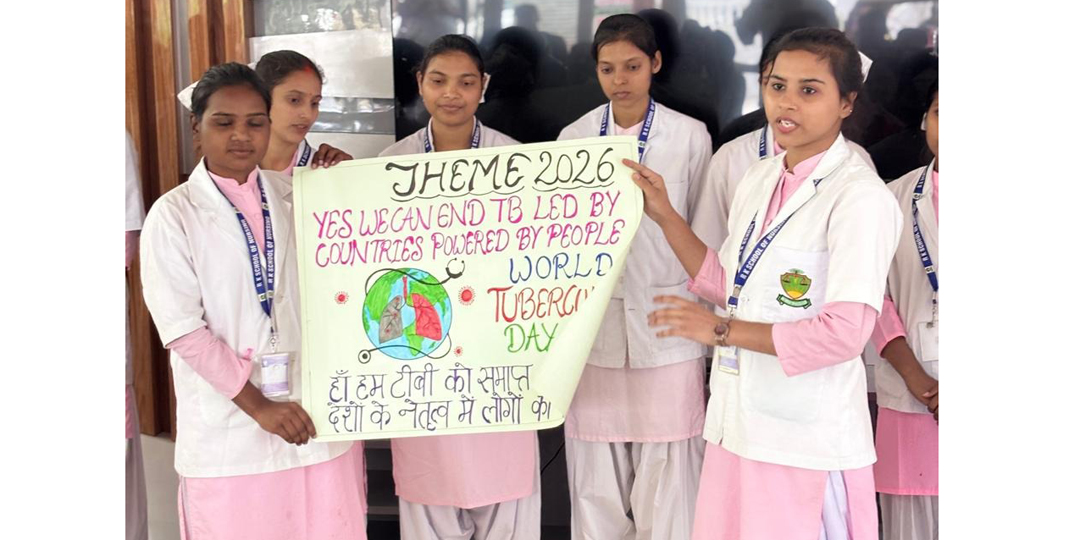 THEME 2026
YES WE CAN END TB LED BY
COUNTRIES POWERED BY PEOPLE
WORLD
DAY
हाँ हम टीबी को समाप्त
देशों के नेतृत्व में लोगों की
SCHOOL OF NURSING